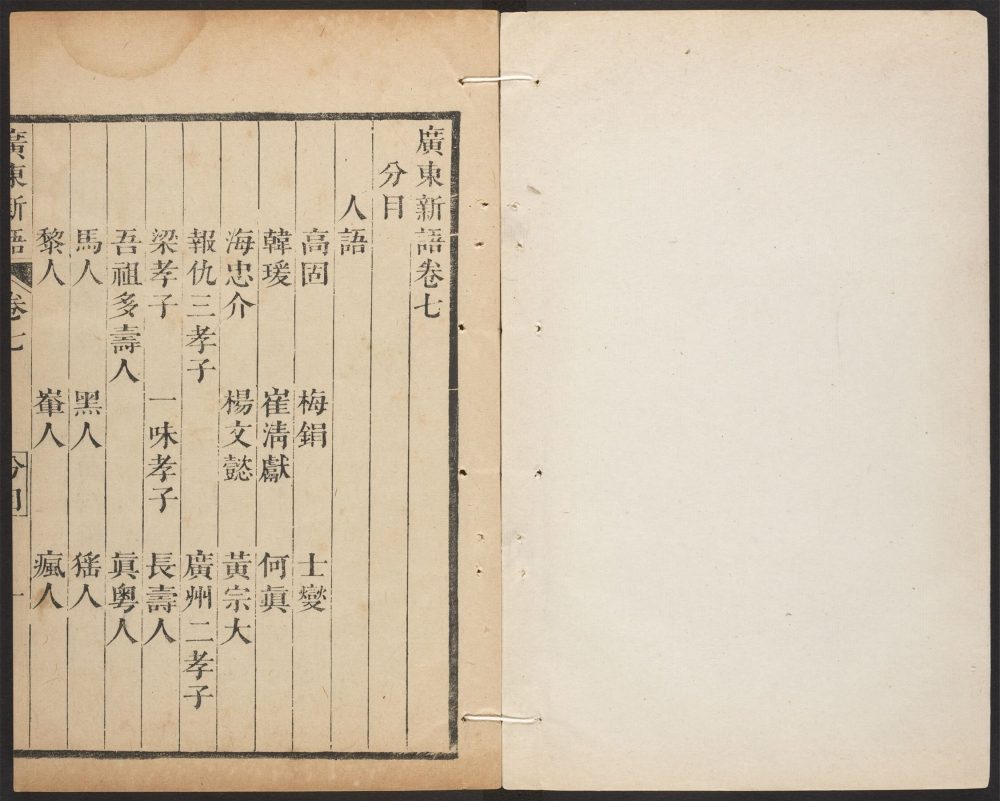 廣東新語卷七
分目
人語
高固 梅鋗 士燮
韓瑗 崔淸獻 何眞
海忠介 楊文懿 黃宗大
報仇三孝子 廣州二孝子
梁孝子 一味孝子 長壽人
吾祖多壽人 眞粵人
馬人 黑人 猺人
黎人 輋人 瘋人
廣東新語 卷七 分目 一